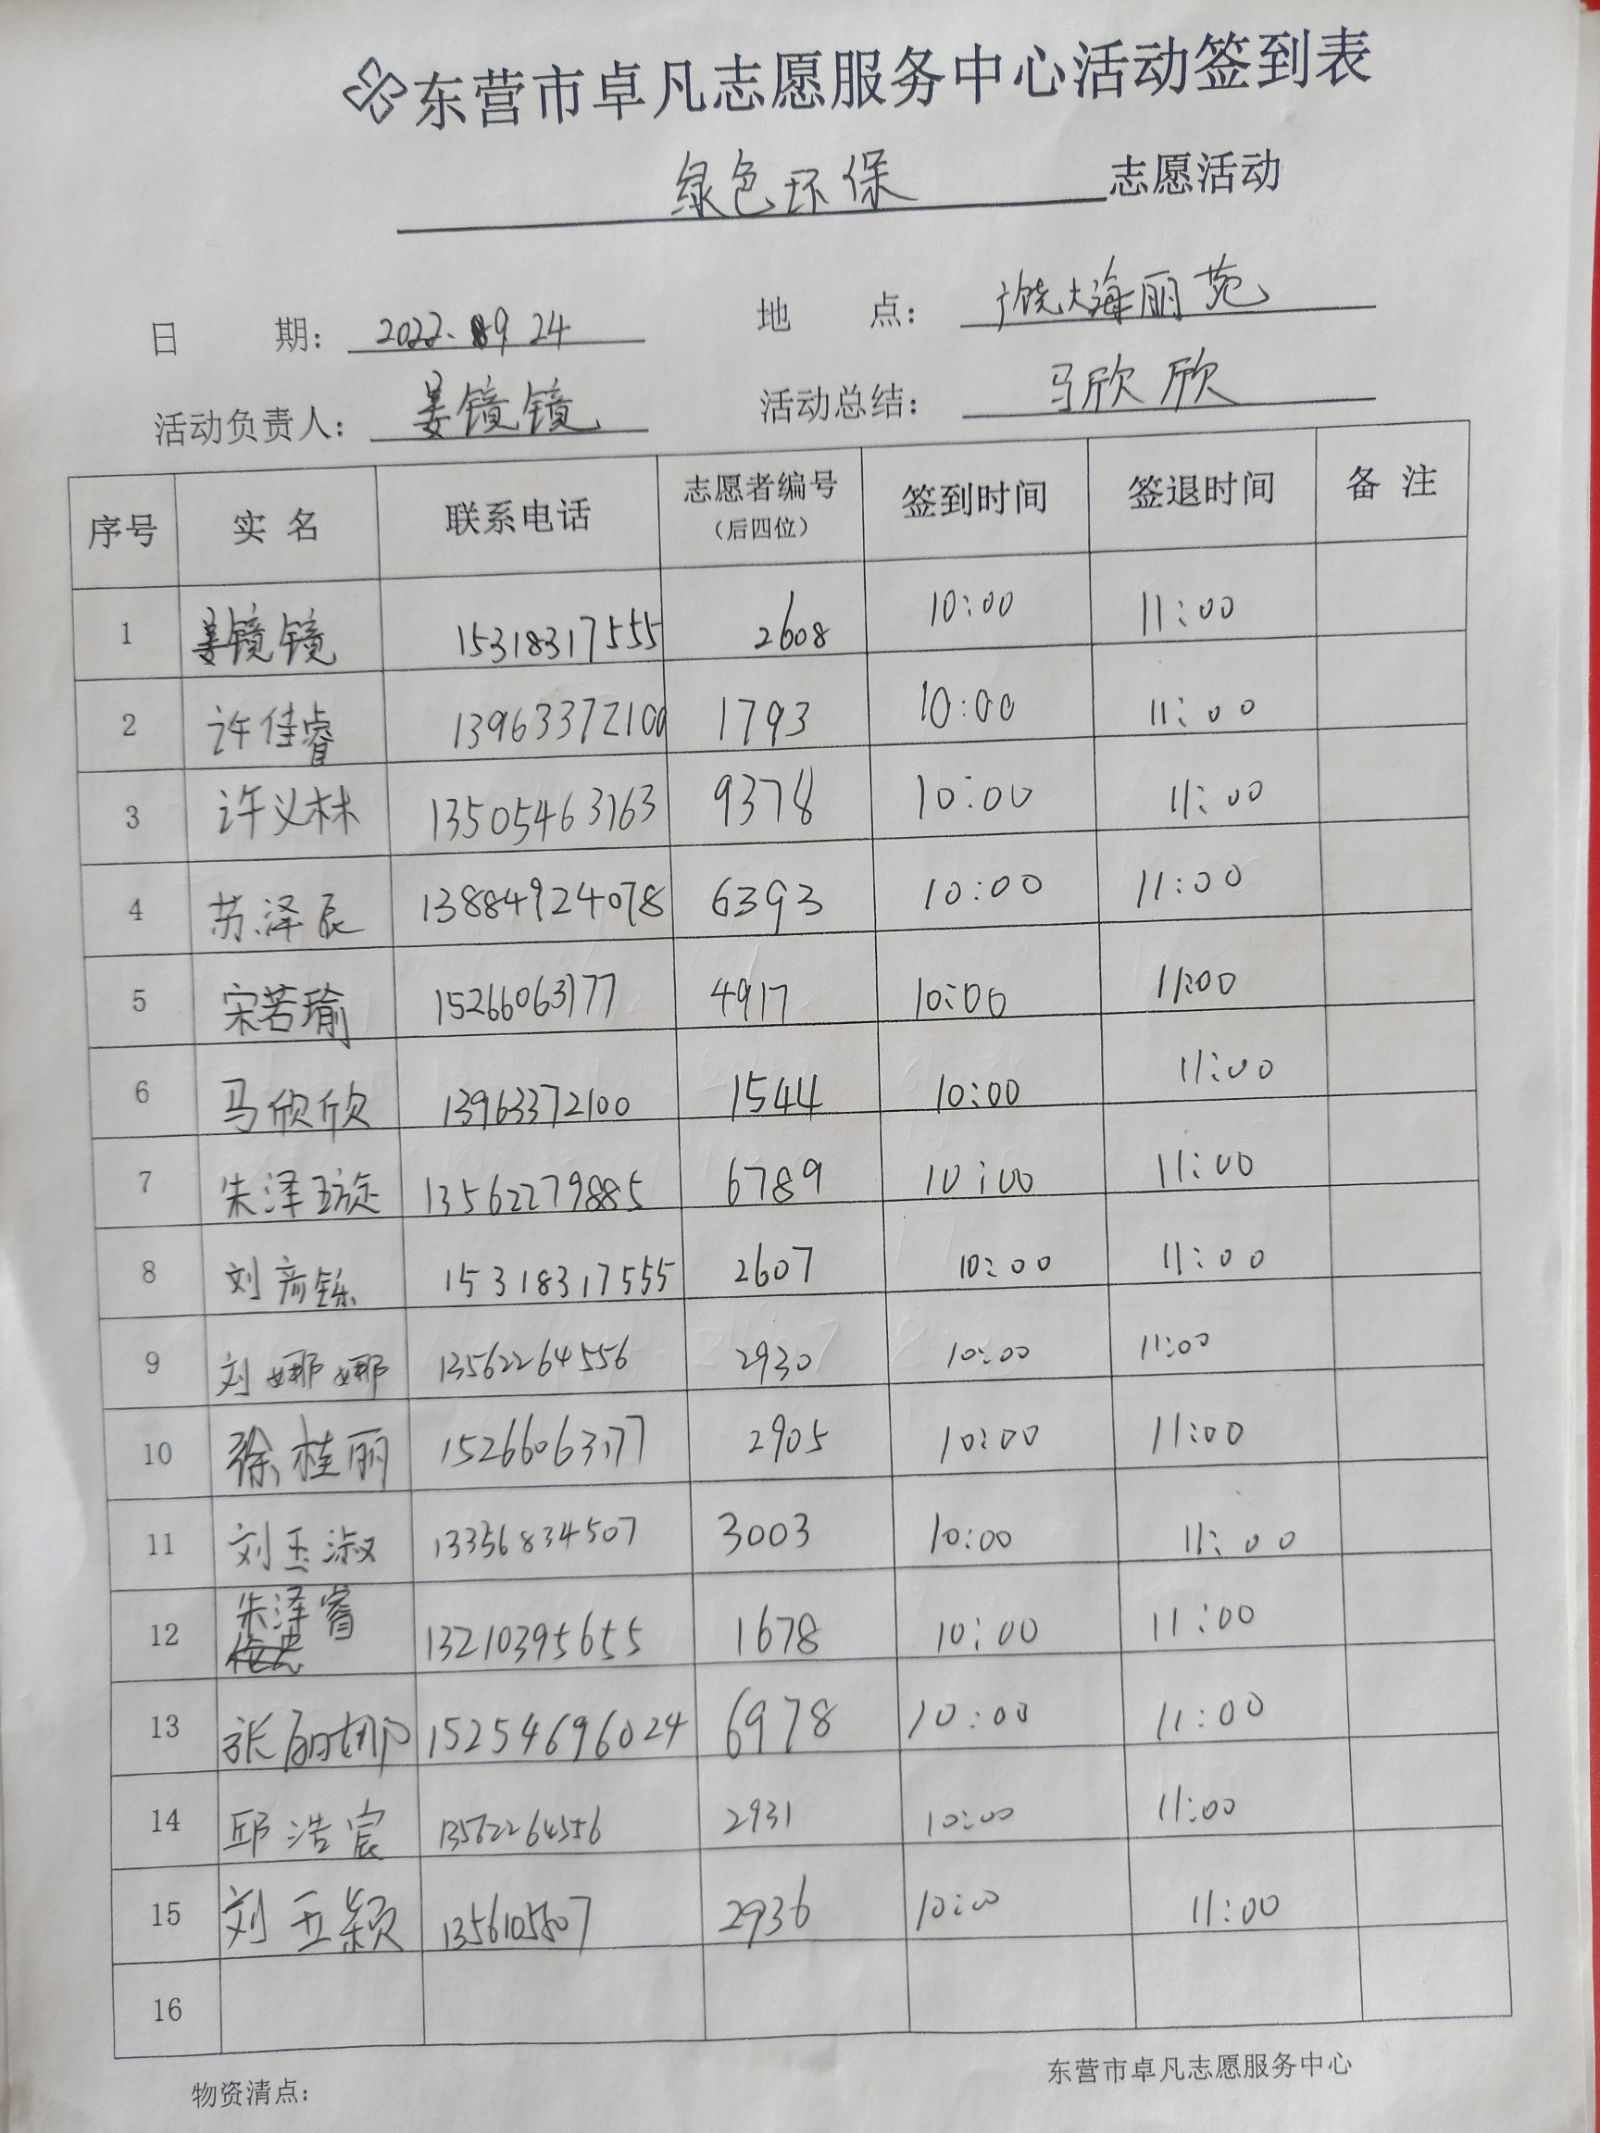 东营市卓凡志愿服务中心活动签到表
绿色环保 志愿活动
日 期： 2022. 9 24 地 点： 广饶大海丽苑
活动负责人： 姜镜镜 活动总结： 马欣欣
序号 实 名 联系电话 志愿者编号（后四位） 签到时间 签退时间 备 注
1 姜镜镜 15318317555 2608 10:00 11:00
2 许佳睿 13963372100 1793 10:00 11:00
3 许义林 13505463163 9378 10:00 11:00
4 苏泽辰 13884924078 6393 10:00 11:00
5 宋若瑜 15266063177 4917 10:00 11:00
6 马欣欣 13963372100 1544 10:00 11:00
7 朱泽璇 13562279885 6789 10:00 11:00
8 刘彦铄 15318317555 2607 10:00 11:00
9 刘娜娜 13562264556 2930 10:00 11:00
10 徐桂丽 15266063177 2905 10:00 11:00
11 刘玉淑 13356834507 3003 10:00 11:00
12 朱泽睿 13210395655 1678 10:00 11:00
13 张丽娜 15254696024 6978 10:00 11:00
14 邱浩宸 13562264556 2931 10:00 11:00
15 刘玉颖 2936 10:00 11:00
16
物资清点： 东营市卓凡志愿服务中心